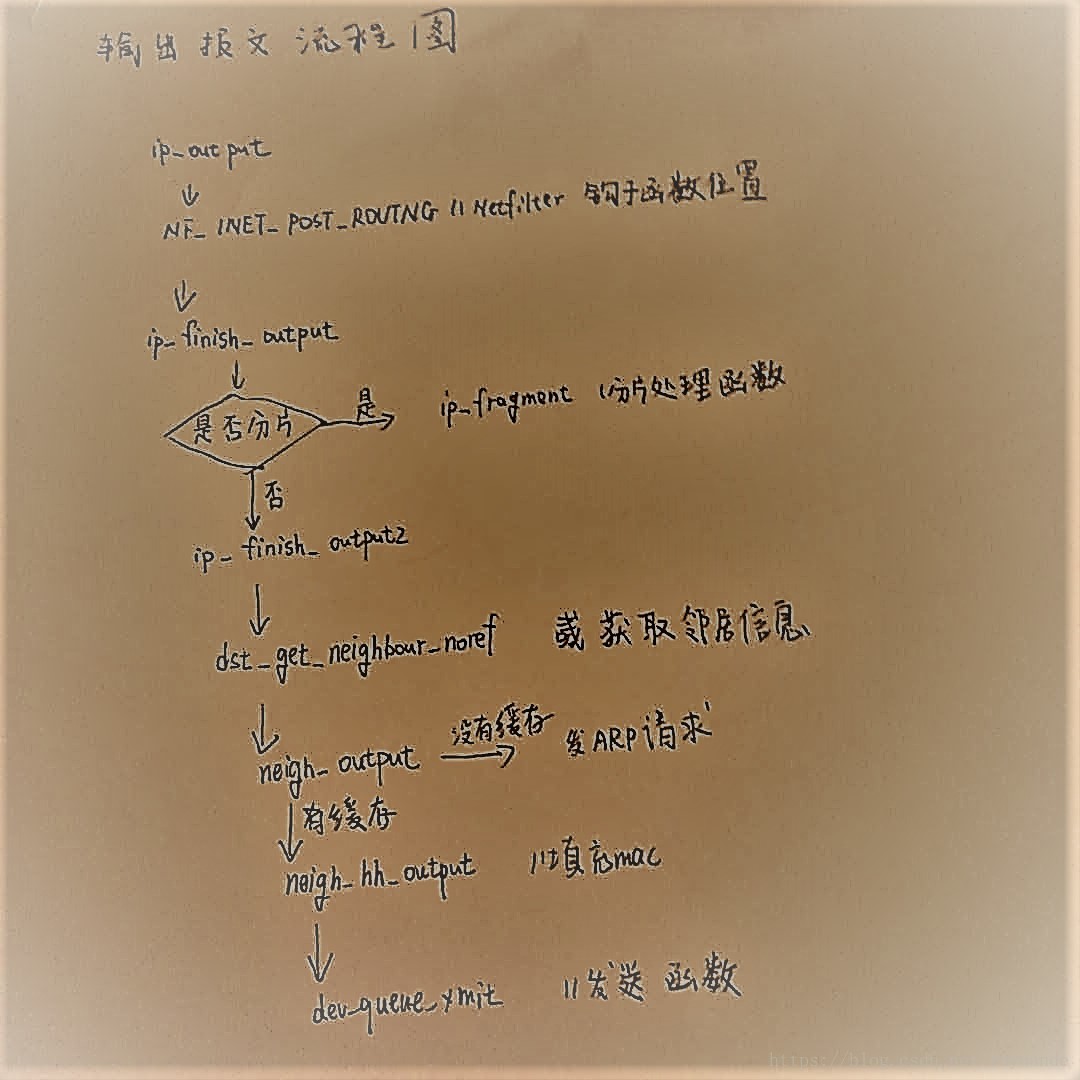 输出报文流程图
ip_output
NF_INET_POST_ROUTNG // Netfilter 钩子函数位置
ip_finish_output
是否分片 是 ip_fragment //分片处理函数
否
ip_finish_output2
dst_get_neighbour_noref 获取邻居信息
neigh_output 没有缓存 发ARP请求
有缓存
neigh_hh_output //填充mac
dev_queue_xmit //发送函数